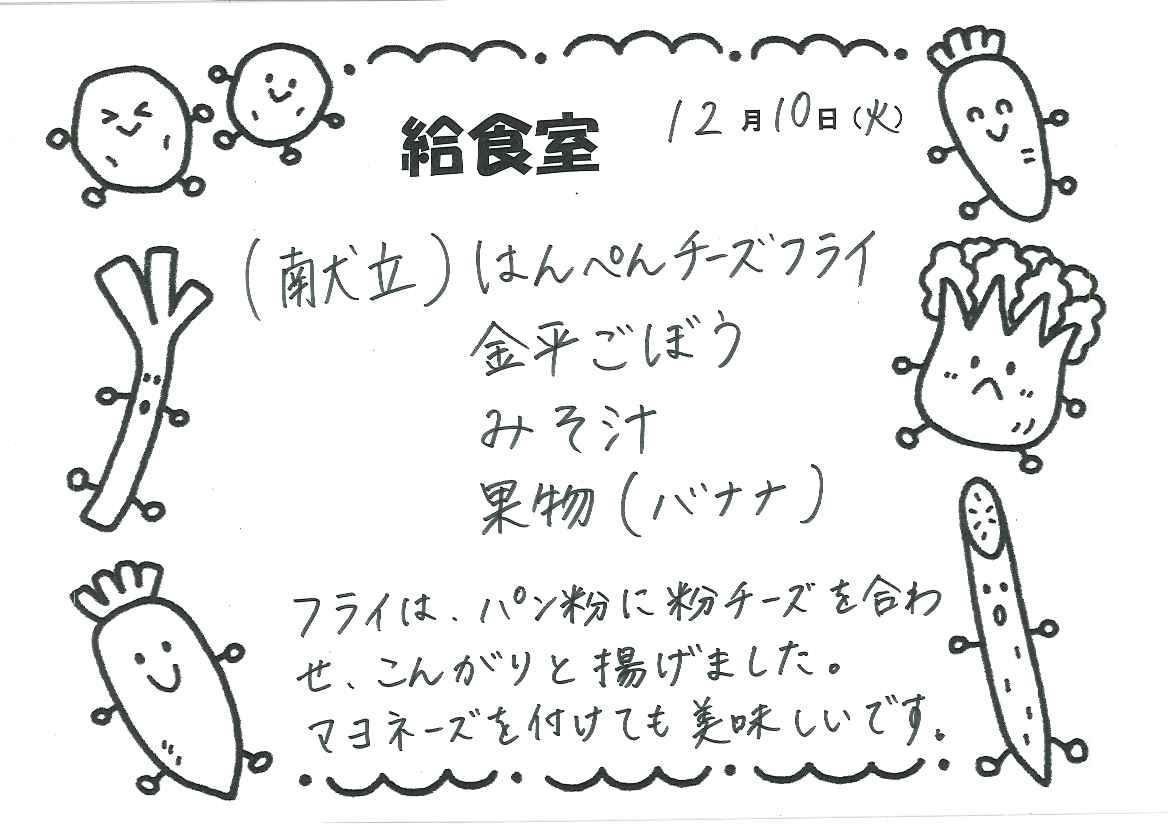 給食室 12月10日(火)
(献立) はんぺんチーズフライ
金平ごぼう
みそ汁
果物(バナナ)
フライは、パン粉に粉チーズを合わ
せ、こんがりと揚げました。
マヨネーズを付けても美味しいです。